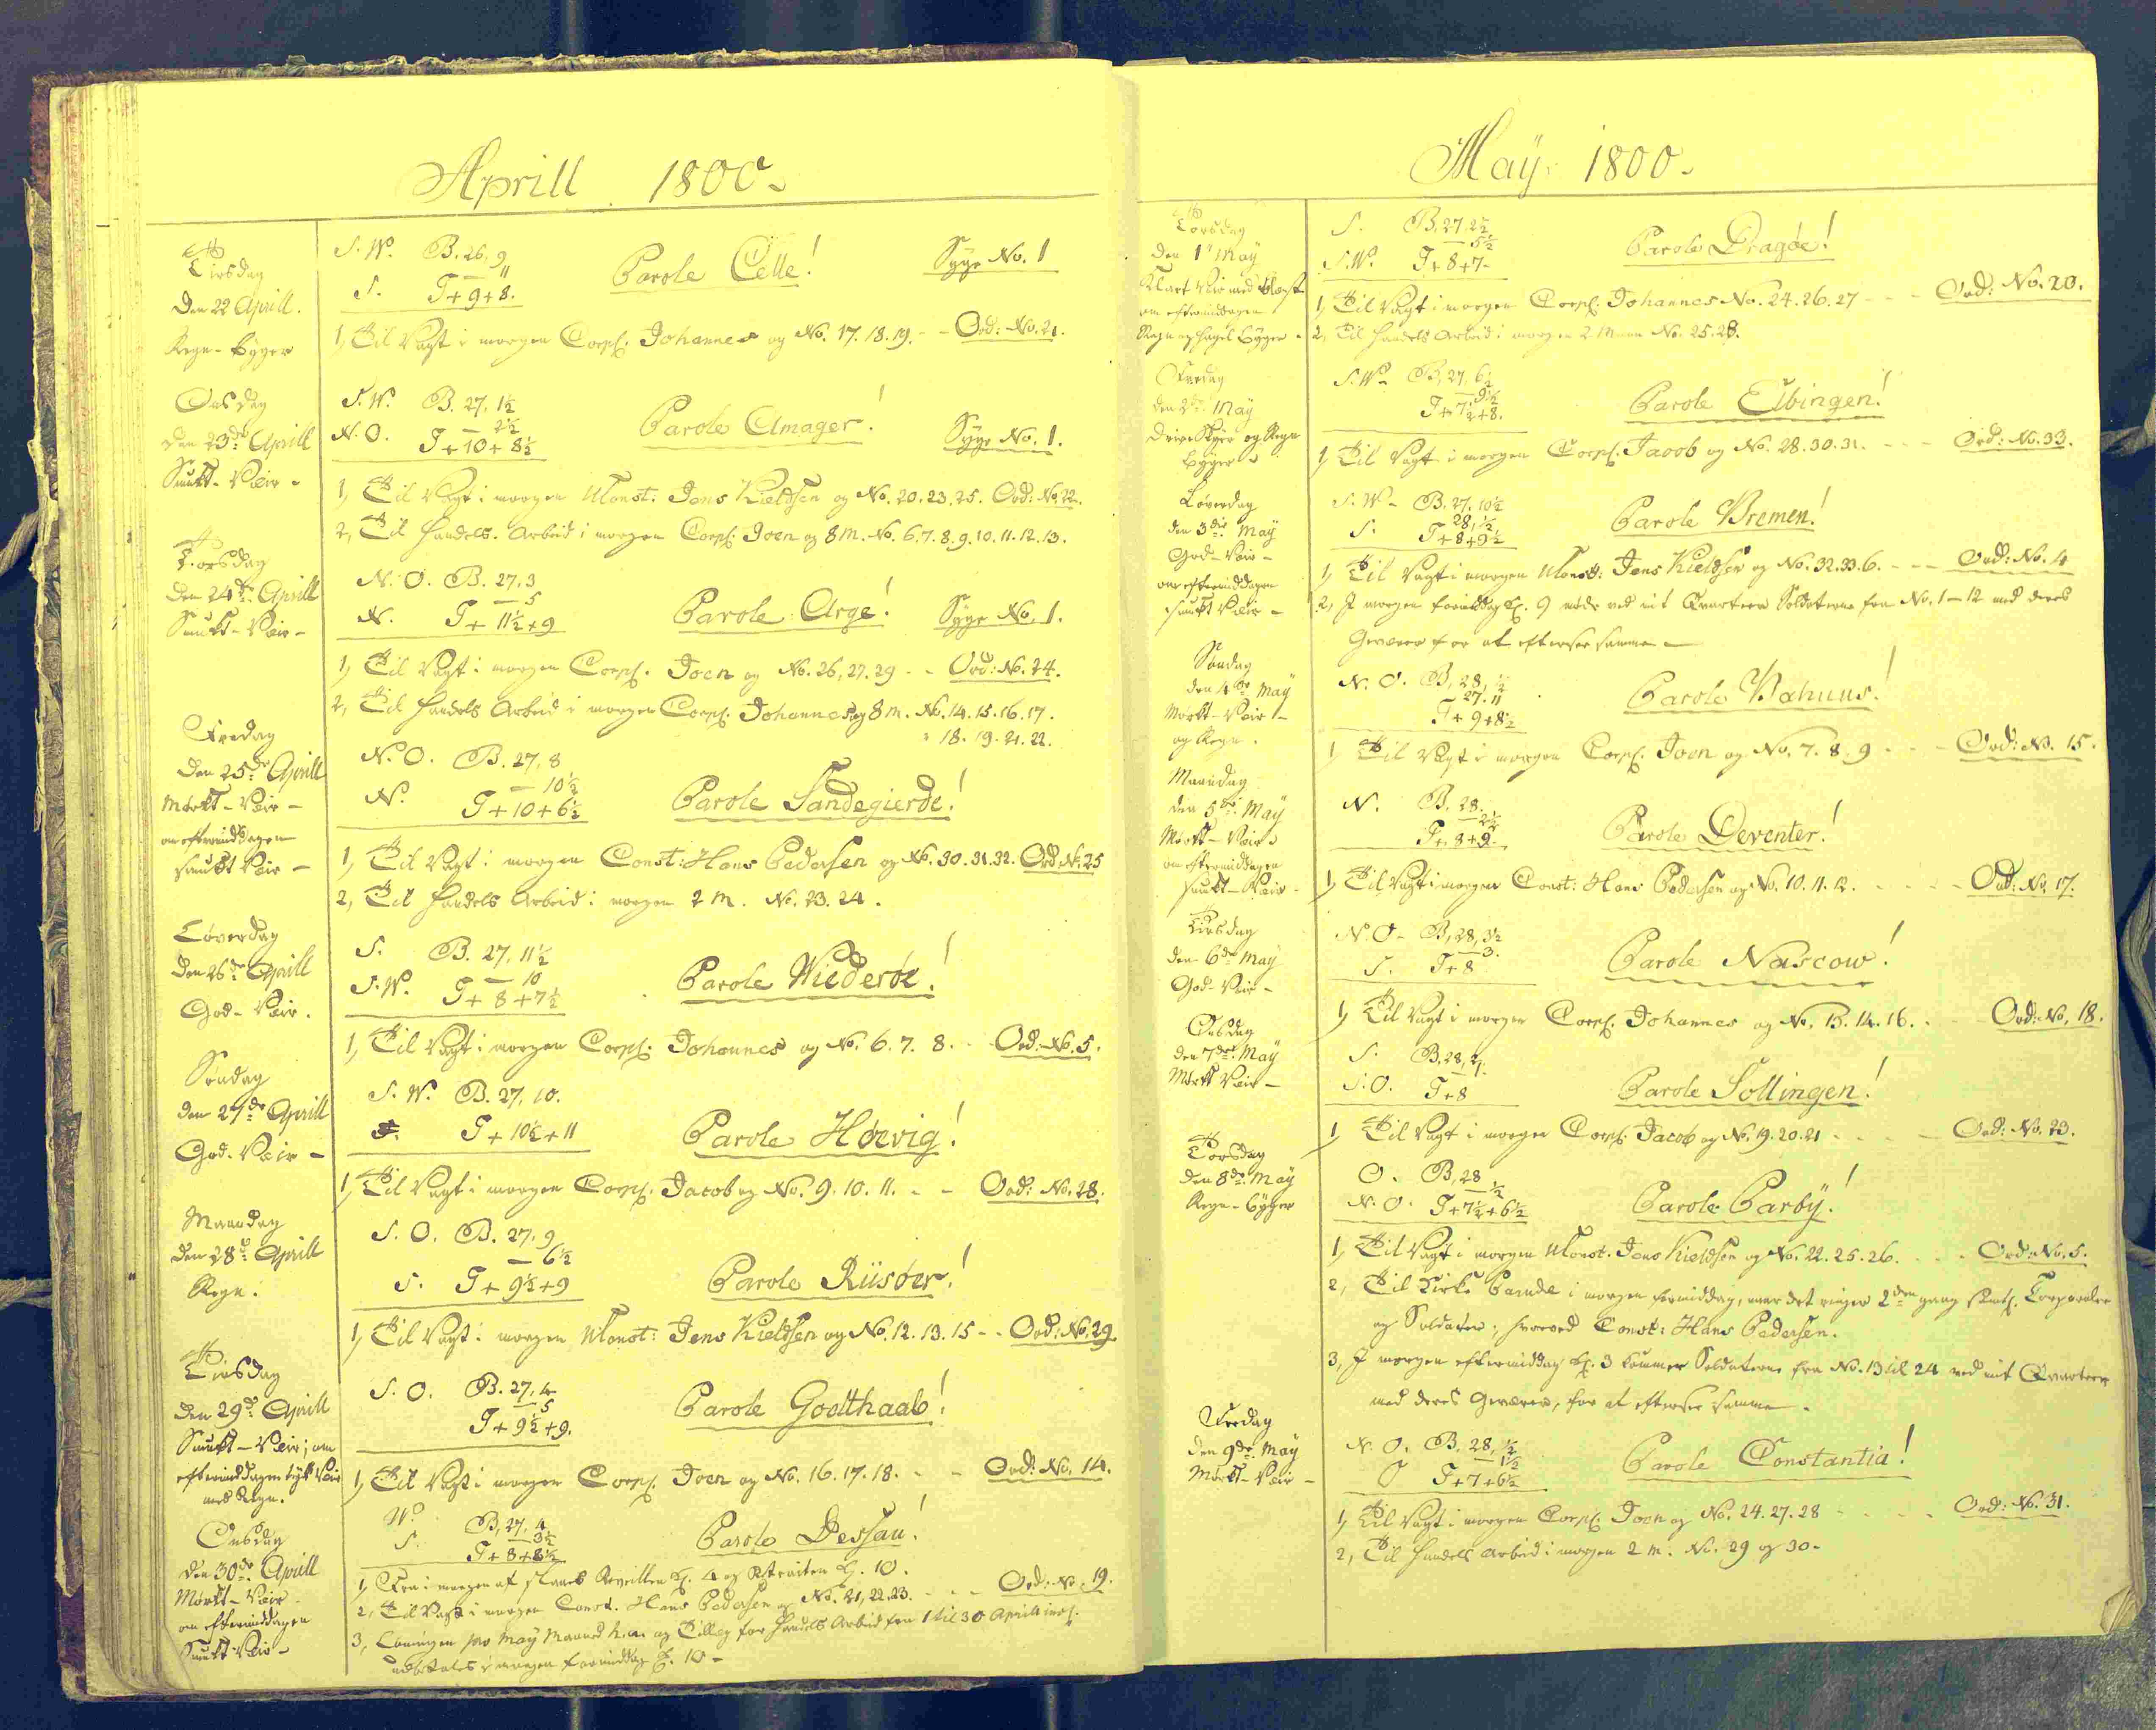 Aprill 1800.
Tirsdag
den 22 Aprill.
Regn-Byger
S.W. B. 26, 9
— 11
S. T+9+8.
Parole Celle!
Syge No. 1
1, Til Vagt i morgen Corpl. Johannes og No. 17. 18. 19. - - Ord: No. 21.
Onsdag
den 23de Aprill
Smukt-Veir-
S.W. B. 27, 1½
— 2½
N.O. T+10+8½
Parole Amager!
Syge No. 1.
1, Til Vagt i morgen Const: Jens Kieldsen og No. 20. 23. 25. Ord: No. 22.
2, Til Handels Arbeid i morgen Corpl. Joen og 8 M. No. 6. 7. 8. 9. 10. 11. 12. 13.
Torsdag
den 24de Aprill
Smukt-Veir-
N.O. B. 27, 3
— 5
N. T+11½+9
Parole Arge!
Syge No. 1.
1, Til Vagt i morgen Corpl. Joen og No. 26, 27. 29 - - Ord: No. 24.
2, Til Handels Arbeid i morgen Corpl. Johannes og 8 m. No. 14. 15. 16. 17.
18. 19. 21. 22.
Fredag
den 25de Aprill
Mørkt-Veir-
om eftermiddagen
smukt Veir-
N.O. B. 27, 8
— 10½
N. T+10+6½
Parole Sandegierde!
1, Til Vagt i morgen Const: Hans Pedersen og No. 30. 31. 32. Ord No. 25
2, Til Handels Arbeid i morgen 2 M. No. 23. 24.
Løverdag
den 26de Aprill
God-Veir.
S. B. 27, 11½
— 10
S.W. T+8+7½
Parole Wiederöe!
1, Til Vagt i morgen Corpl. Johannes og No. 6. 7. 8. - Ord: No. 5.
Søndag
den 27de Aprill
God-Veir-
S.W. B. 27, 10.
T+10½+11
Parole Hörvig!
1, Til Vagt i morgen Corpl. Jacob og No. 9. 10. 11. - - Ord: No. 28.
Mandag
den 28de Aprill
Regn.
S.O. B. 27, 9
— 6½
S. T+9½+9
Parole Riisöer!
1, Til Vagt i morgen Const: Jens Kieldsen og No. 12. 13. 15 - - Ord: No. 29.
Tirsdag
den 29de Aprill
Smukt-Veir; om
eftermiddagen tykt Veir
med Regn.
S.O. B. 27, 4
— 5
T+9½+9.
Parole Godthaab!
1, Til Vagt i morgen Corpl. Joen og No. 16. 17. 18. - - Ord: No. 14.
Onsdag
den 30de Aprill
Mørkt-Veir-
om eftermiddagen
Smukt-Veir-
W. B. 27, 4
— 3½
S. T+8+8½
Parole Dessau!
1, Fra i morgen af slaaes Reveillen Kl. 4 og Retraiten Kl. 10.
2, Til Vagt i morgen Const. Hans Pedersen og No. 21, 22. 23. - - - Ord: No. 19.
3, Lønningen pro May Maaned og Tillæg for Handels Arbeid fra 1 til 30 Aprill incl.
udbetales i morgen formiddag Kl. 10-
May 1800.
Torsdag
den 1te May
Klart Veir med Blæst
om eftermiddagen
Regn og Hagel Byger-
S. B, 27, 2½
— 5½
S.W. T+8+7-
Parole Dragöe!
1, Til Vagt i morgen Corpl. Johannes No. 24. 26. 27 - - - Ord: No. 20.
2, Til Handels Arbeid i morgen 2 Mann No. 25. 28.
Fredag
den 2den May
Driv Skyer og Regn
Byger
S.W- B, 27, 6½
— 9½
T+7½+8.
Parole Elbingen!
1, Til Vagt i morgen Corpl. Jacob og No. 28. 30. 31. - - - Ord: No. 33.
Løverdag
den 3die May
God-Veir-
om eftermiddagen
smukt Veir-
S.W- B, 27, 10½
28, ½
S. T+8+9½
Parole Bremen!
1, Til Vagt i morgen Const: Jens Kieldsen og No. 32. 33. 6. - - - Ord: No. 4
2, I morgen formiddag Kl. 9 møde ved mit Qvarteer Soldaterne fra No. 1-12 med deres
Geværer for at eftersee samme-
Søndag
den 4de May
Mørkt-Veir-
og Regn.
N.O. B, 28, ½
27. 11
T+9+8½
Parole Bahuus!
1, Til Vagt i morgen Corpl. Joen og No. 7. 8. 9 - - - Ord: No. 15.
Mandag
den 5te May
Mørkt-Veir
om eftermiddagen
smukt-Veir-
N. B. 28.
— 2½
T+8+9.
Parole Deventer!
1, Til Vagt i morgen Const: Hans Pedersen og No. 10. 11. 12. - - - Ord: No. 17.
Tirsdag
den 6de May
God-Veir-
N.O- B, 28, 3½
— 3.
S. T+8
Parole Nascow!
1, Til Vagt i morgen Corpl. Johannes og No. 13. 14. 16. - Ord: No. 18.
Onsdag
den 7de May
Mørkt Veir-
S. B. 28, 2.
S.O. T+8
Parole Sollingen!
1, Til Vagt i morgen Corpl. Jacob og No. 19. 20. 21 - - - - Ord: No. 23.
Torsdag
den 8de May
Regn-Byger
O. B, 28
— ½
N.O. T+7½+6½
Parole Barby!
1, Til Vagt i morgen Const: Jens Kieldsen og No. 22. 25. 26. - - - Ord: No. 5.
2, Til Kirke Parade i morgen formiddag, naar det ringer 2den gang samtl. Corporaler
og Soldater; hvorved Const: Hans Pedersen.
3, I morgen eftermiddag Kl. 3 kommer Soldaterne fra No. 13 til 24 ved mit Qvarteer
med deres Geværer, for at eftersee samme.
Fredag
den 9de May
Mørkt-Veir-
N.O. B. 28, ½
— 1½
O T+7+6½
Parole Constantia!
1, Til Vagt i morgen Corpl. Joen og No. 24. 27. 28 - - - - Ord: No. 31.
2, Til Handels Arbeid i morgen 2 M. No. 29 og 30-